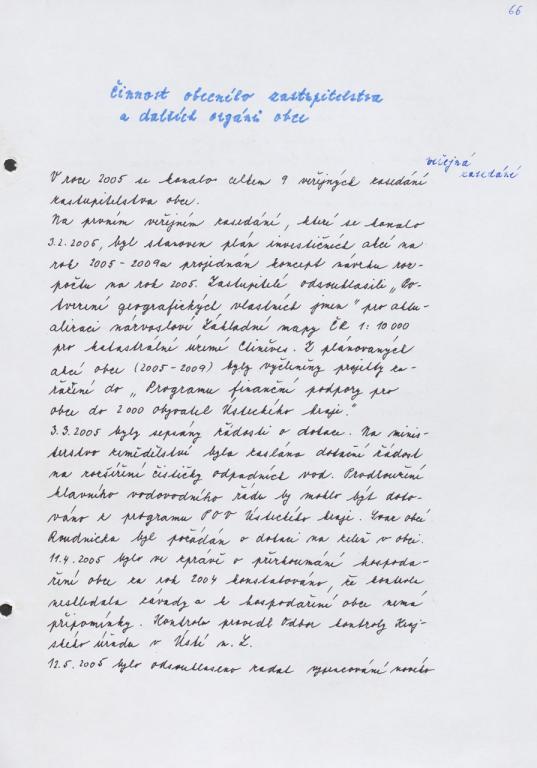 66
Činnost obecního zastupitelstva
a dalších orgánů obce
veřejná
zasedání
V roce 2005 se konalo celkem 9 veřejných zasedání
zastupitelstva obce.
Na prvním veřejném zasedání, které se konalo
3.2.2005, byl stanoven plán investičních akcí na
rok 2005-2009 a projednán koncept návrhu roz-
počtu na rok 2005. Zastupitelé odsouhlasili „Po-
tvrzení geografických vlastních jmen" pro aktu-
alizaci názvosloví Základní mapy ČR 1:10 000
pro katastrální území Ctiněves. Z plánovaných
akcí obce (2005-2009) byly vyčleněny projekty za-
řažení do „Programu finanční podpory pro
obce do 2000 obyvatel Ústeckého kraje."
3.3.2005 byly sepsány žádosti o dotace. Na minis-
terstvo zemědělství byla zaslána dotační žádost
na rozšíření čističky odpadních vod. Prodloužení
hlavního vodovodního řádu by mohlo být doto-
váno z programu POV Ústeckého kraje. Svaz obcí
Roudnicka byl požádán o dotaci na zeleň v obci.
11.4.2005 bylo ve zprávě o přezkoumání hospoda-
ření obce za rok 2004 konstatováno, že kontrola
neshledala závady a k hospodaření obce nemá
připomínky. Kontrolu provedl Odbor kontroly Kraj-
ského úřadu v Ústí n. L.
12.5.2005 bylo odsouhlaseno zadat vypracování nového